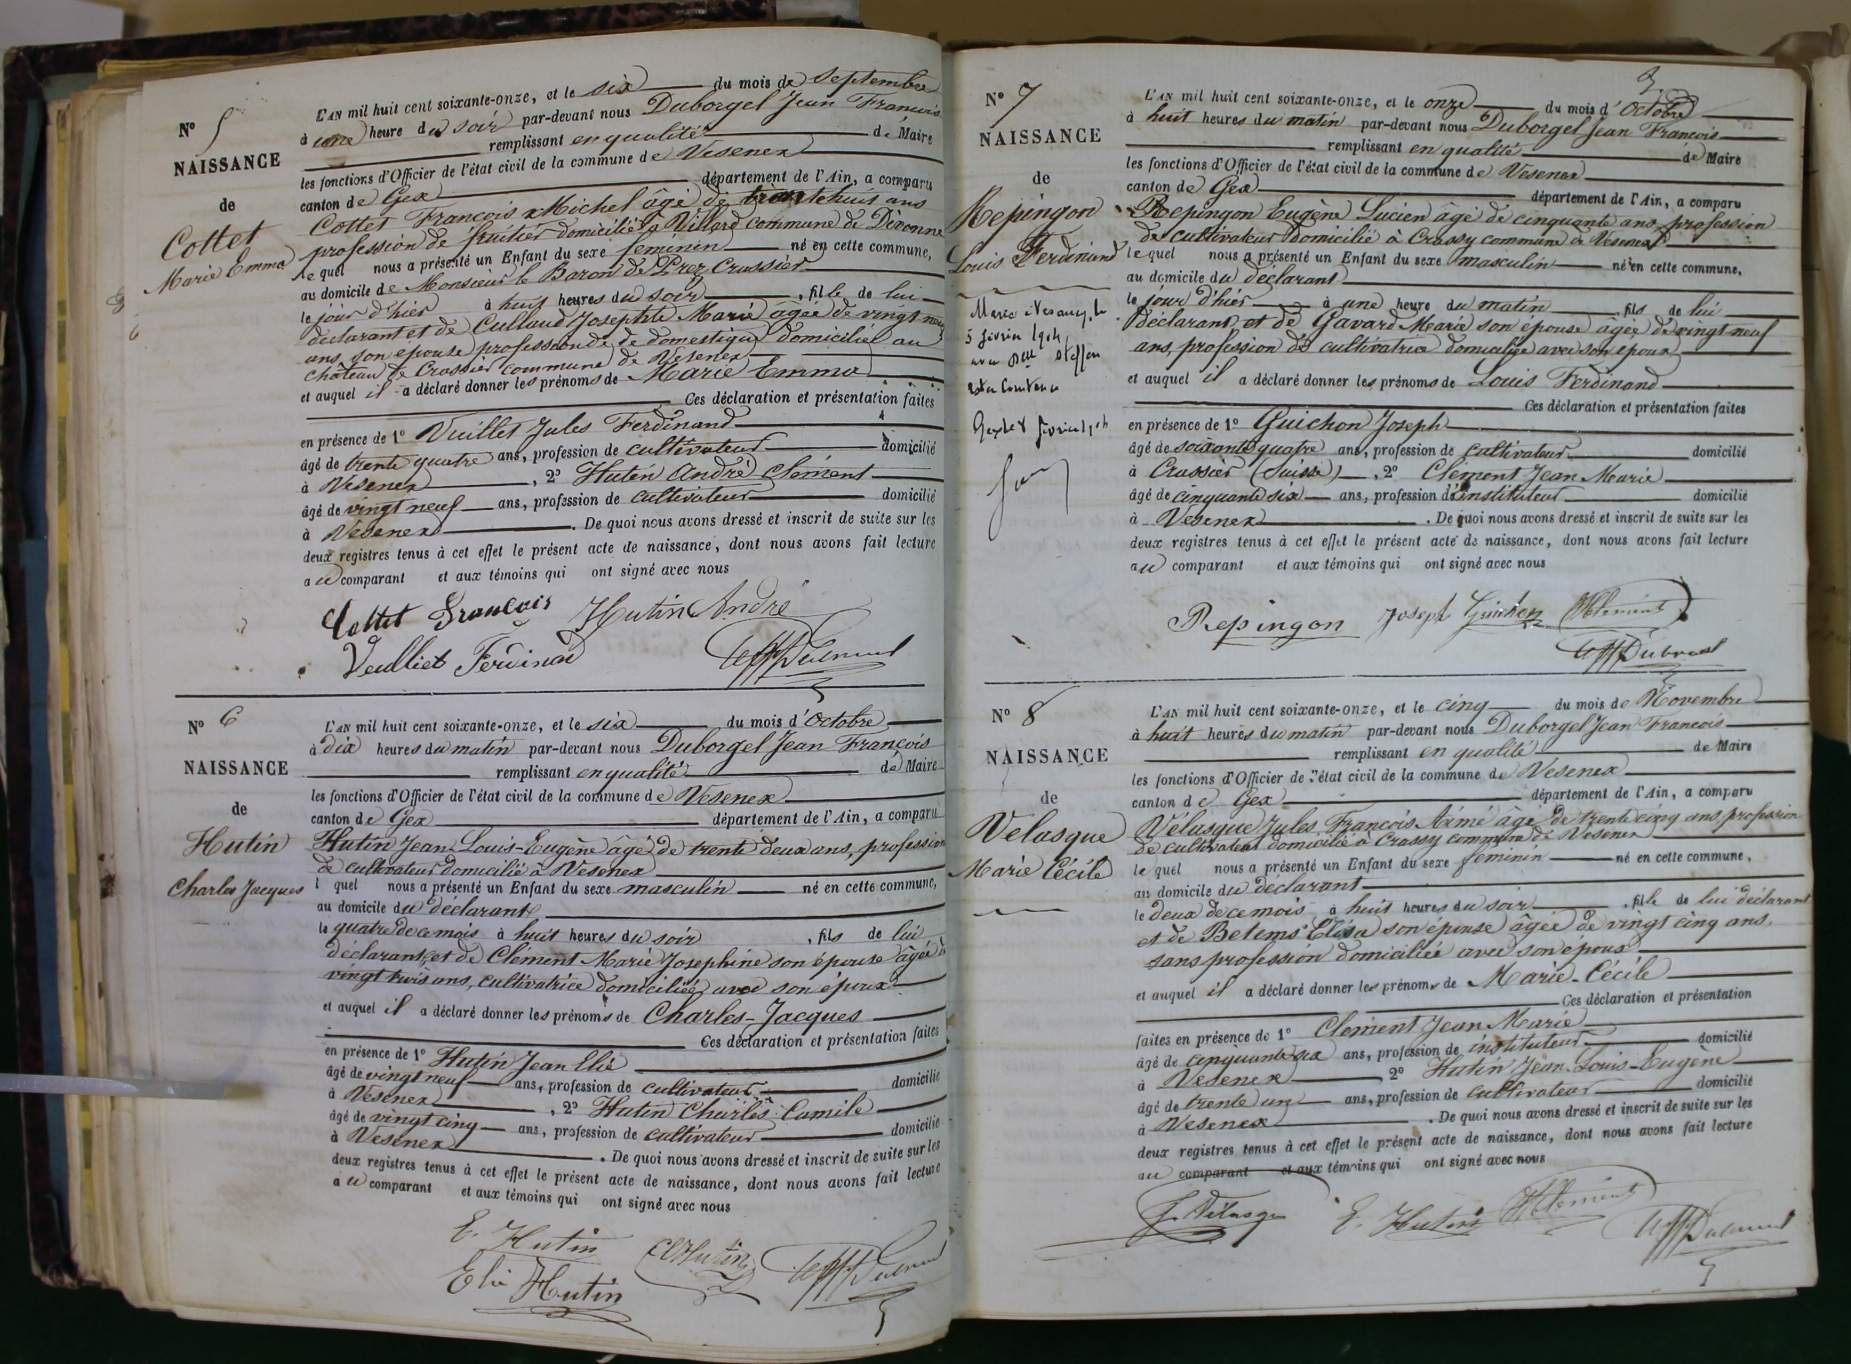 N° 5
NAISSANCE
de
Cottet
Marie Emma
L'AN mil huit cent soixante-onze, et le six du mois de Septembre
à une heure du soir par-devant nous Duborgel Jean François
remplissant en qualité de Maire
les fonctions d'Officier de l'état civil de la commune de Vesenex
canton de Gex département de l'Ain, a comparu
Cottet François Michel âgé de trente huit ans
profession de fruitier domicilié à Villard commune de Divonne
le quel nous a présenté un Enfant du sexe féminin né en cette commune,
au domicile de Monsieur le Baron de Prez Crassier
le jour d'hier à huit heures du soir, fille de lui
déclarant et de Cullaud Josephte Marie âgée de vingt neuf
ans, son épouse profession de domestique domiciliée au
château de Crassier commune de Vesenex
et auquel il a déclaré donner les prénoms de Marie Emma
Ces déclaration et présentation faites
en présence de 1° Vuillet Jules Ferdinand
âgé de trente quatre ans, profession de cultivateur domicilié
à Vesenex, 2° Hutin André Clément
âgé de vingt neuf ans, profession de cultivateur domicilié
à Vesenex. De quoi nous avons dressé et inscrit de suite sur les
deux registres tenus à cet effet le présent acte de naissance, dont nous avons fait lecture
au comparant et aux témoins qui ont signé avec nous
Cottet François Hutin André
Veulliet Ferdinad
N° 6
NAISSANCE
de
Hutin
Charles Jacques
L'AN mil huit cent soixante-onze, et le six du mois d'Octobre
à dix heures du matin par-devant nous Duborgel Jean François
remplissant en qualité de Maire
les fonctions d'Officier de l'état civil de la commune de Vesenex
canton de Gex département de l'Ain, a comparu
Hutin Jean Louis-Eugène âgé de trente deux ans, profession
de cultivateur domicilié à Vesenex
l quel nous a présenté un Enfant du sexe masculin né en cette commune,
au domicile du déclarant
le quatre de ce mois à huit heures du soir, fils de lui
déclarant, et de Clément Marie Josephine son épouse âgée de
vingt trois ans, cultivatrice domiciliée avec son époux
et auquel il a déclaré donner les prénoms de Charles-Jacques
Ces déclaration et présentation faites
en présence de 1° Hutin Jean Elie
âgé de vingt neuf ans, profession de cultivateur domicilié
à Vesenex, 2° Hutin Charles Camile
âgé de vingt cinq ans, profession de cultivateur domicilié
à Vesenex. De quoi nous avons dressé et inscrit de suite sur les
deux registres tenus à cet effet le présent acte de naissance, dont nous avons fait lecture
au comparant et aux témoins qui ont signé avec nous
E. Hutin
Elie Hutin
N° 7
NAISSANCE
de
Repingon
Louis Ferdinand
L'AN mil huit cent soixante-onze, et le onze du mois d'Octobre
à huit heures du matin par-devant nous Duborgel Jean François
remplissant en qualité de Maire
les fonctions d'Officier de l'état civil de la commune de Vesenex
canton de Gex département de l'Ain, a comparu
Repingon Eugène Lucien âgé de cinquante ans, profession
de cultivateur domicilié à Crassy commune de Vesenex
le quel nous a présenté un Enfant du sexe masculin né en cette commune,
au domicile du déclarant
le jour d'hier à une heure du matin, fils de lui
déclarant, et de Gavard Marie son épouse âgée de vingt neuf
ans, profession de cultivatrice domiciliée avec son époux
et auquel il a déclaré donner les prénoms de Louis Ferdinand
Ces déclaration et présentation faites
en présence de 1° Guichon Joseph
âgé de soixante quatre ans, profession de cultivateur domicilié
à Crassier (Suisse), 2° Clément Jean Marie
âgé de cinquante six ans, profession d'instituteur domicilié
à Vesenex. De quoi nous avons dressé et inscrit de suite sur les
deux registres tenus à cet effet le présent acte de naissance, dont nous avons fait lecture
au comparant et aux témoins qui ont signé avec nous
Repingon Joseph Guichon Clément
N° 8
NAISSANCE
de
Vélasque
Marie Cécile
L'AN mil huit cent soixante-onze, et le cinq du mois de Novembre
à huit heures du matin par-devant nous Duborgel Jean François
remplissant en qualité de Maire
les fonctions d'Officier de l'état civil de la commune de Vesenex
canton de Gex département de l'Ain, a comparu
Vélasque Jules François Aimé âgé de trente cinq ans, profession
de cultivateur domicilié à Crassy commune de Vesenex
le quel nous a présenté un Enfant du sexe féminin né en cette commune,
au domicile du déclarant
le deux de ce mois à huit heures du soir, fille de lui déclarant
et de Betems Elisa son épouse âgée de vingt cinq ans
sans profession domiciliée avec son époux
et auquel il a déclaré donner les prénoms de Marie-Cécile
Ces déclaration et présentation
faites en présence de 1° Clément Jean Marie
âgé de cinquante six ans, profession de instituteur domicilié
à Vesenex 2° Hutin Jean Louis-Eugène
âgé de trente un ans, profession de cultivateur domicilié
à Vesenex. De quoi nous avons dressé et inscrit de suite sur les
deux registres tenus à cet effet le présent acte de naissance, dont nous avons fait lecture
au comparant et aux témoins qui ont signé avec nous
E. Hutin Clément